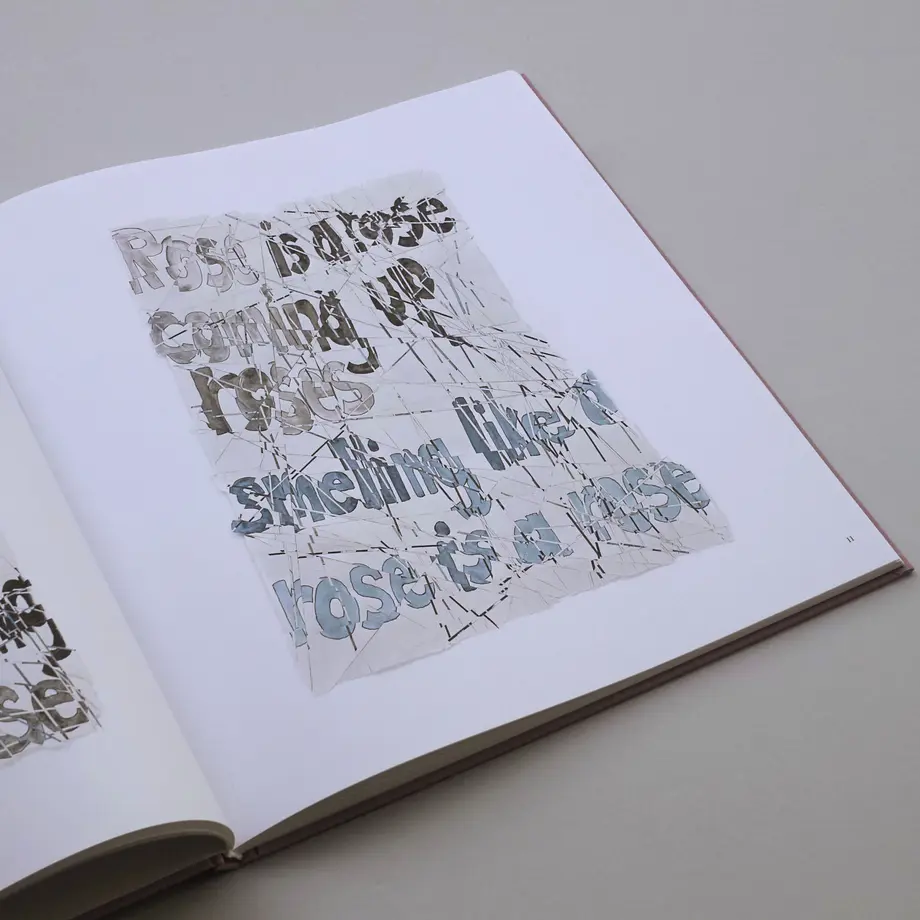 Rose is a rose
coming up
roses
smelling like a
rose is a rose
11